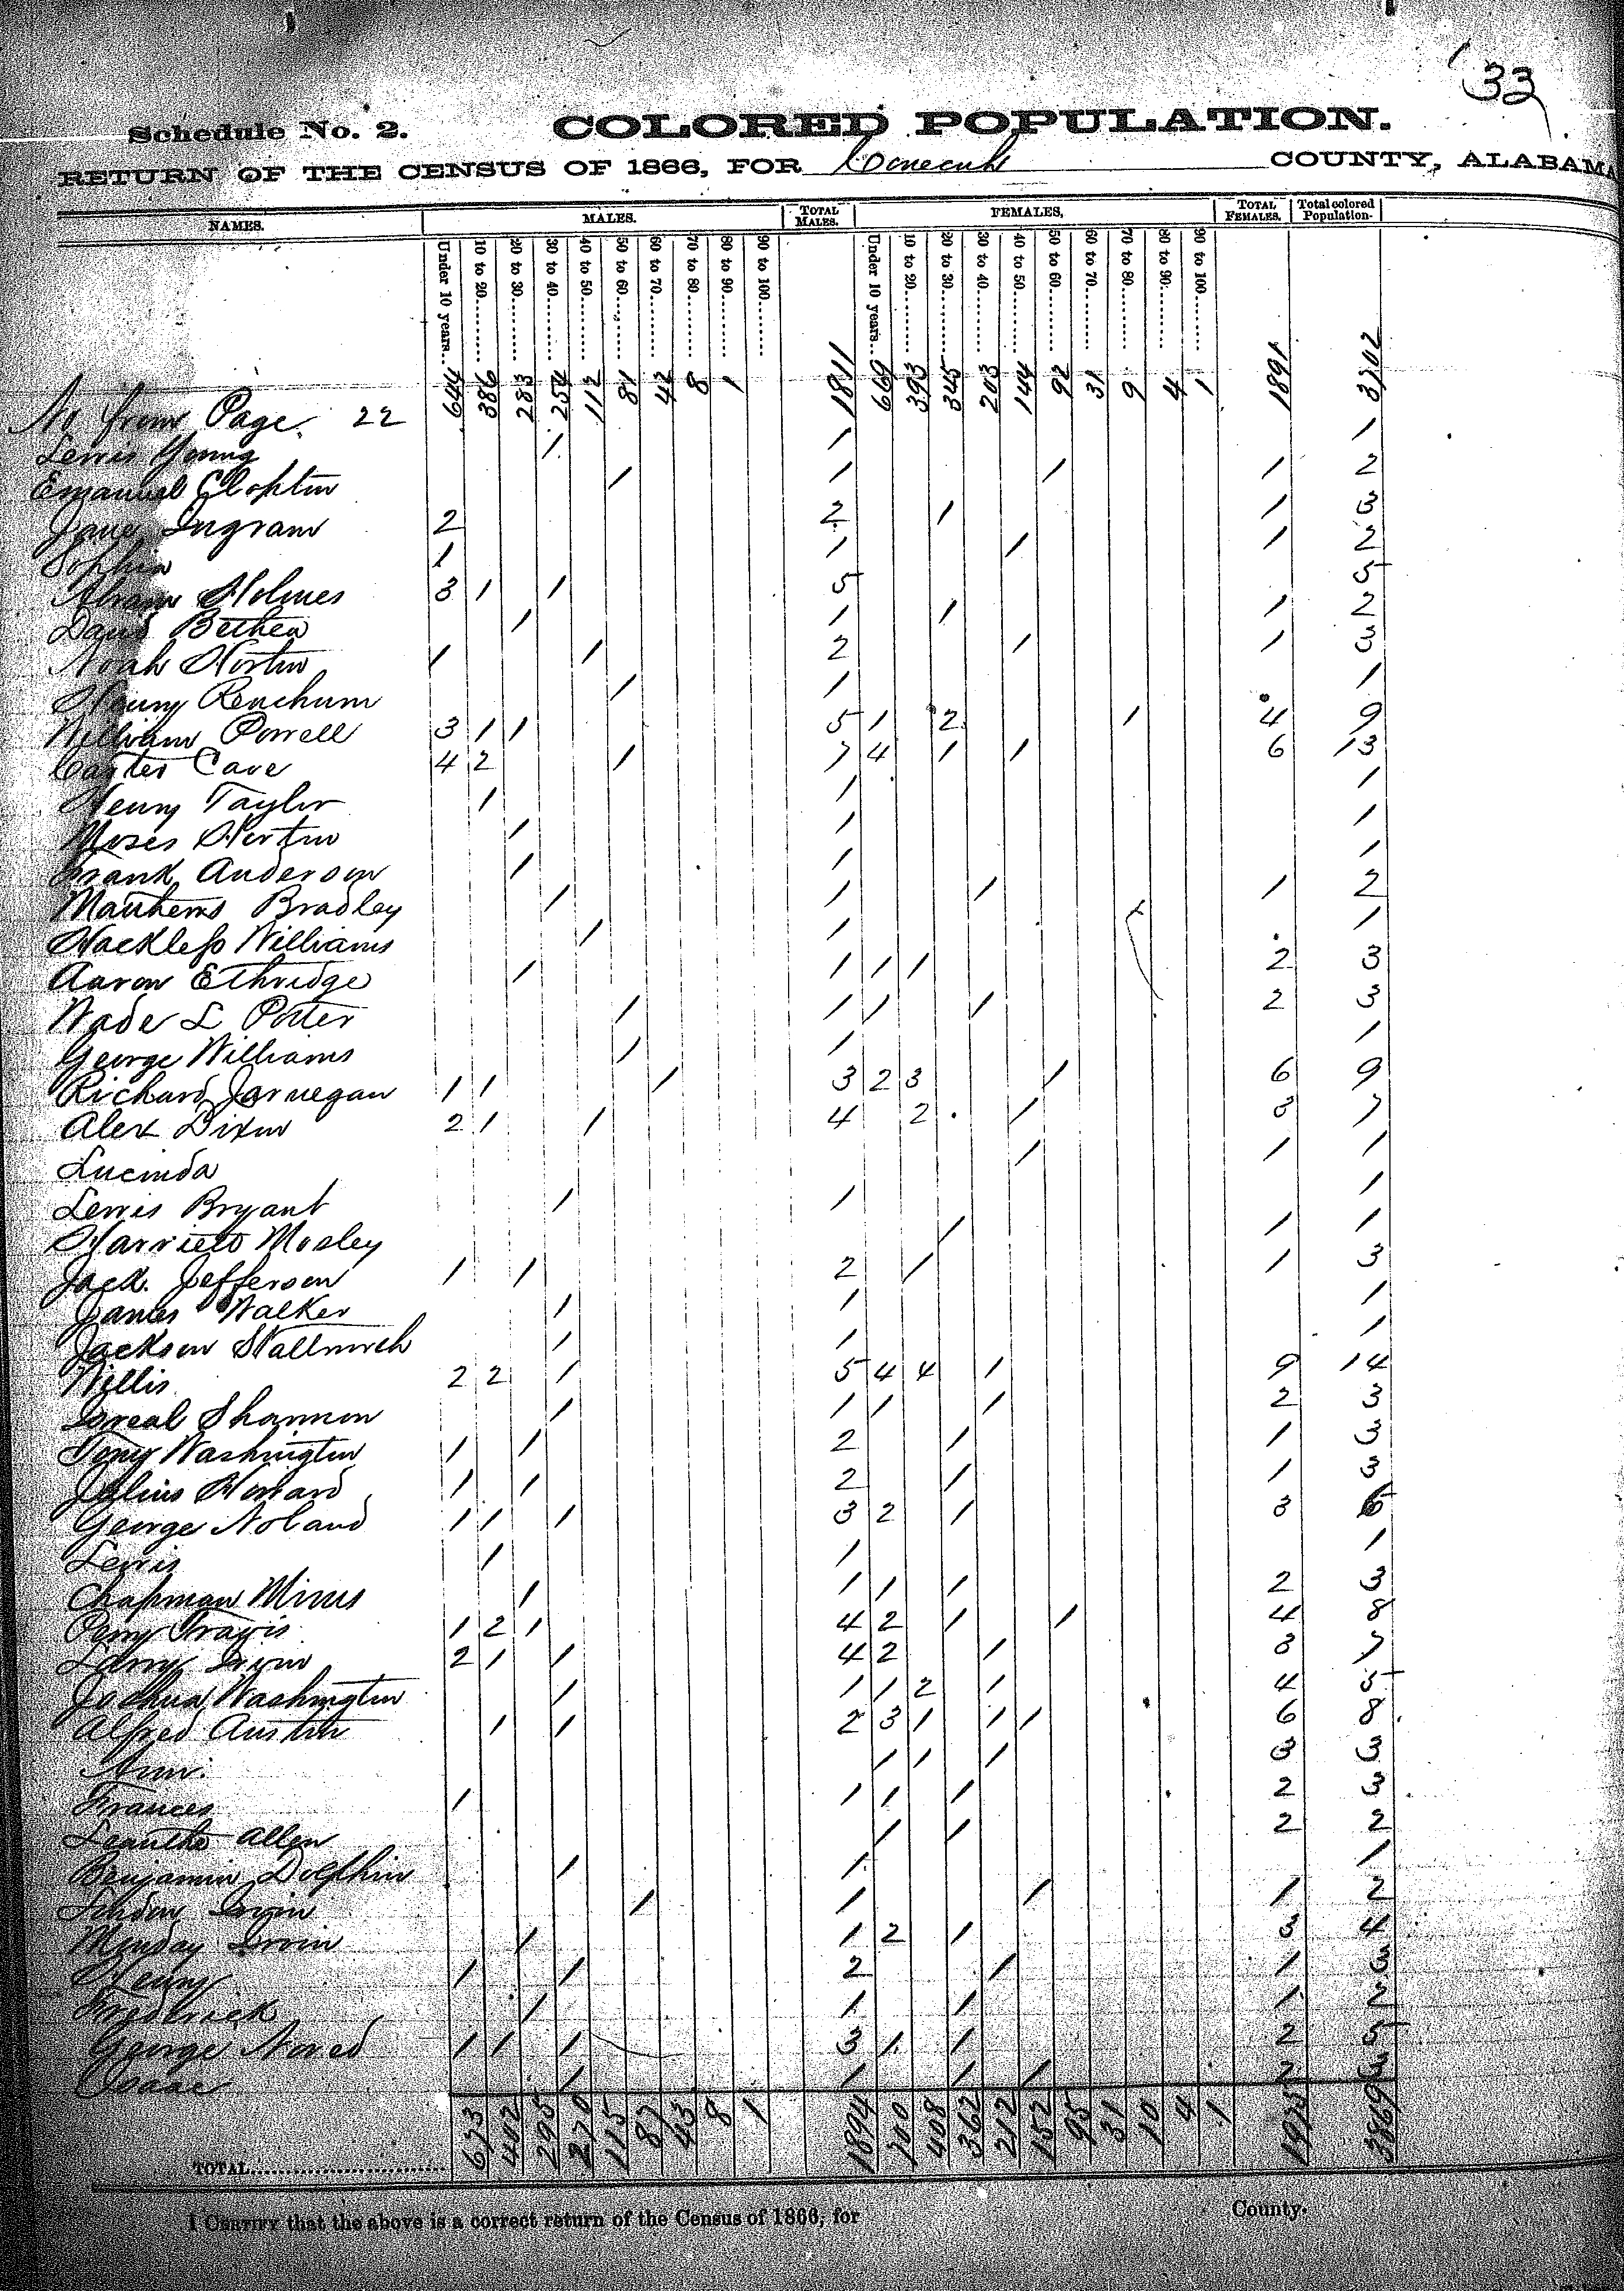 33
Schedule No. 2. COLORED POPULATION.
RETURN OF THE CENSUS OF 1866, FOR Conecuh COUNTY, ALABAMA
NAMES. MALES. TOTAL MALES. FEMALES. TOTAL FEMALES. Total colored Population.
Under 10 years.. 10 to 20........ 20 to 30........ 30 to 40........ 40 to 50........ 50 to 60........ 60 to 70........ 70 to 80........ 80 to 90........ 90 to 100........ Under 10 years.. 10 to 20........ 20 to 30........ 30 to 40........ 40 to 50........ 50 to 60........ 60 to 70........ 70 to 80........ 80 to 90........ 90 to 100........
No from Page 22 644 386 283 254 112 81 42 8 1 1811 669 393 345 203 144 92 31 9 4 1 1891 3702
Lewis Young 1 1 1
Emanuel Clopton 1 1 1 1 2
Jane Ingram 2 2 1 1 3
Sophia 1 1 1 1 2
Abram Holmes 3 1 1 5 5
David Bethea 1 1 1 1 2
Noah Horton 1 1 2 1 1 3
Henry 1 1 1
William Powell 3 1 1 5 1 2 1 4 9
Carter Cave 4 2 1 7 4 1 1 6 13
Henry Taylor 1 1 1
Moses Horton 1 1 1
Frank Anderson 1 1 1
Mathews Bradley 1 1 1 1 2
Williams 1 1 1
Aaron Ethridge 1 1 1 1 2 3
Wade L Potter 1 1 1 1 2 3
George Williams 1 1 1
Richard Jarnegan 1 1 1 3 2 3 1 6 9
Alex Dixon 2 1 1 4 2 1 3 7
Lucinda 1 1 1
Lewis Bryant 1 1 1
Harriett Mosley 1 1 1
Jack Jefferson 1 1 2 1 1 3
James Walker 1 1 1
Jackson Stallworth 1 1 1
Willis 2 2 1 5 4 4 1 9 14
Isreal Shannon 1 1 1 1 2 3
Tony Washington 1 1 2 1 1 3
Julius Howard 1 1 2 1 1 3
George Noland 1 1 1 3 2 1 3 6
Lewis 1 1 1
Chapman Mims 1 1 1 1 2 3
Perry Travis 1 2 1 4 2 1 1 4 8
2 1 1 4 2 1 3 7
Joshua Washington 1 1 1 2 1 4 5
Alfred Austin 1 1 2 3 1 1 1 6 8
Ann 1 1 1 3 3
Frances 1 1 1 1 2 3
Allen 1 1 2 2
Benjamin Dolphin 1 1 1
Irvin 1 1 1 1 2
Monday Irvin 1 1 2 1 3 4
Henry 1 1 2 1 1 3
Fredbrick 1 1 1 1 2
George Noved 1 1 1 3 1 1 2 5
Isaac 1 1 1 1 2 3
TOTAL........................ 673 402 295 270 115 87 43 8 1 1894 700 408 362 212 152 95 31 10 4 1 1975 3869
I CERTIFY that the above is a correct return of the Census of 1866, for County.